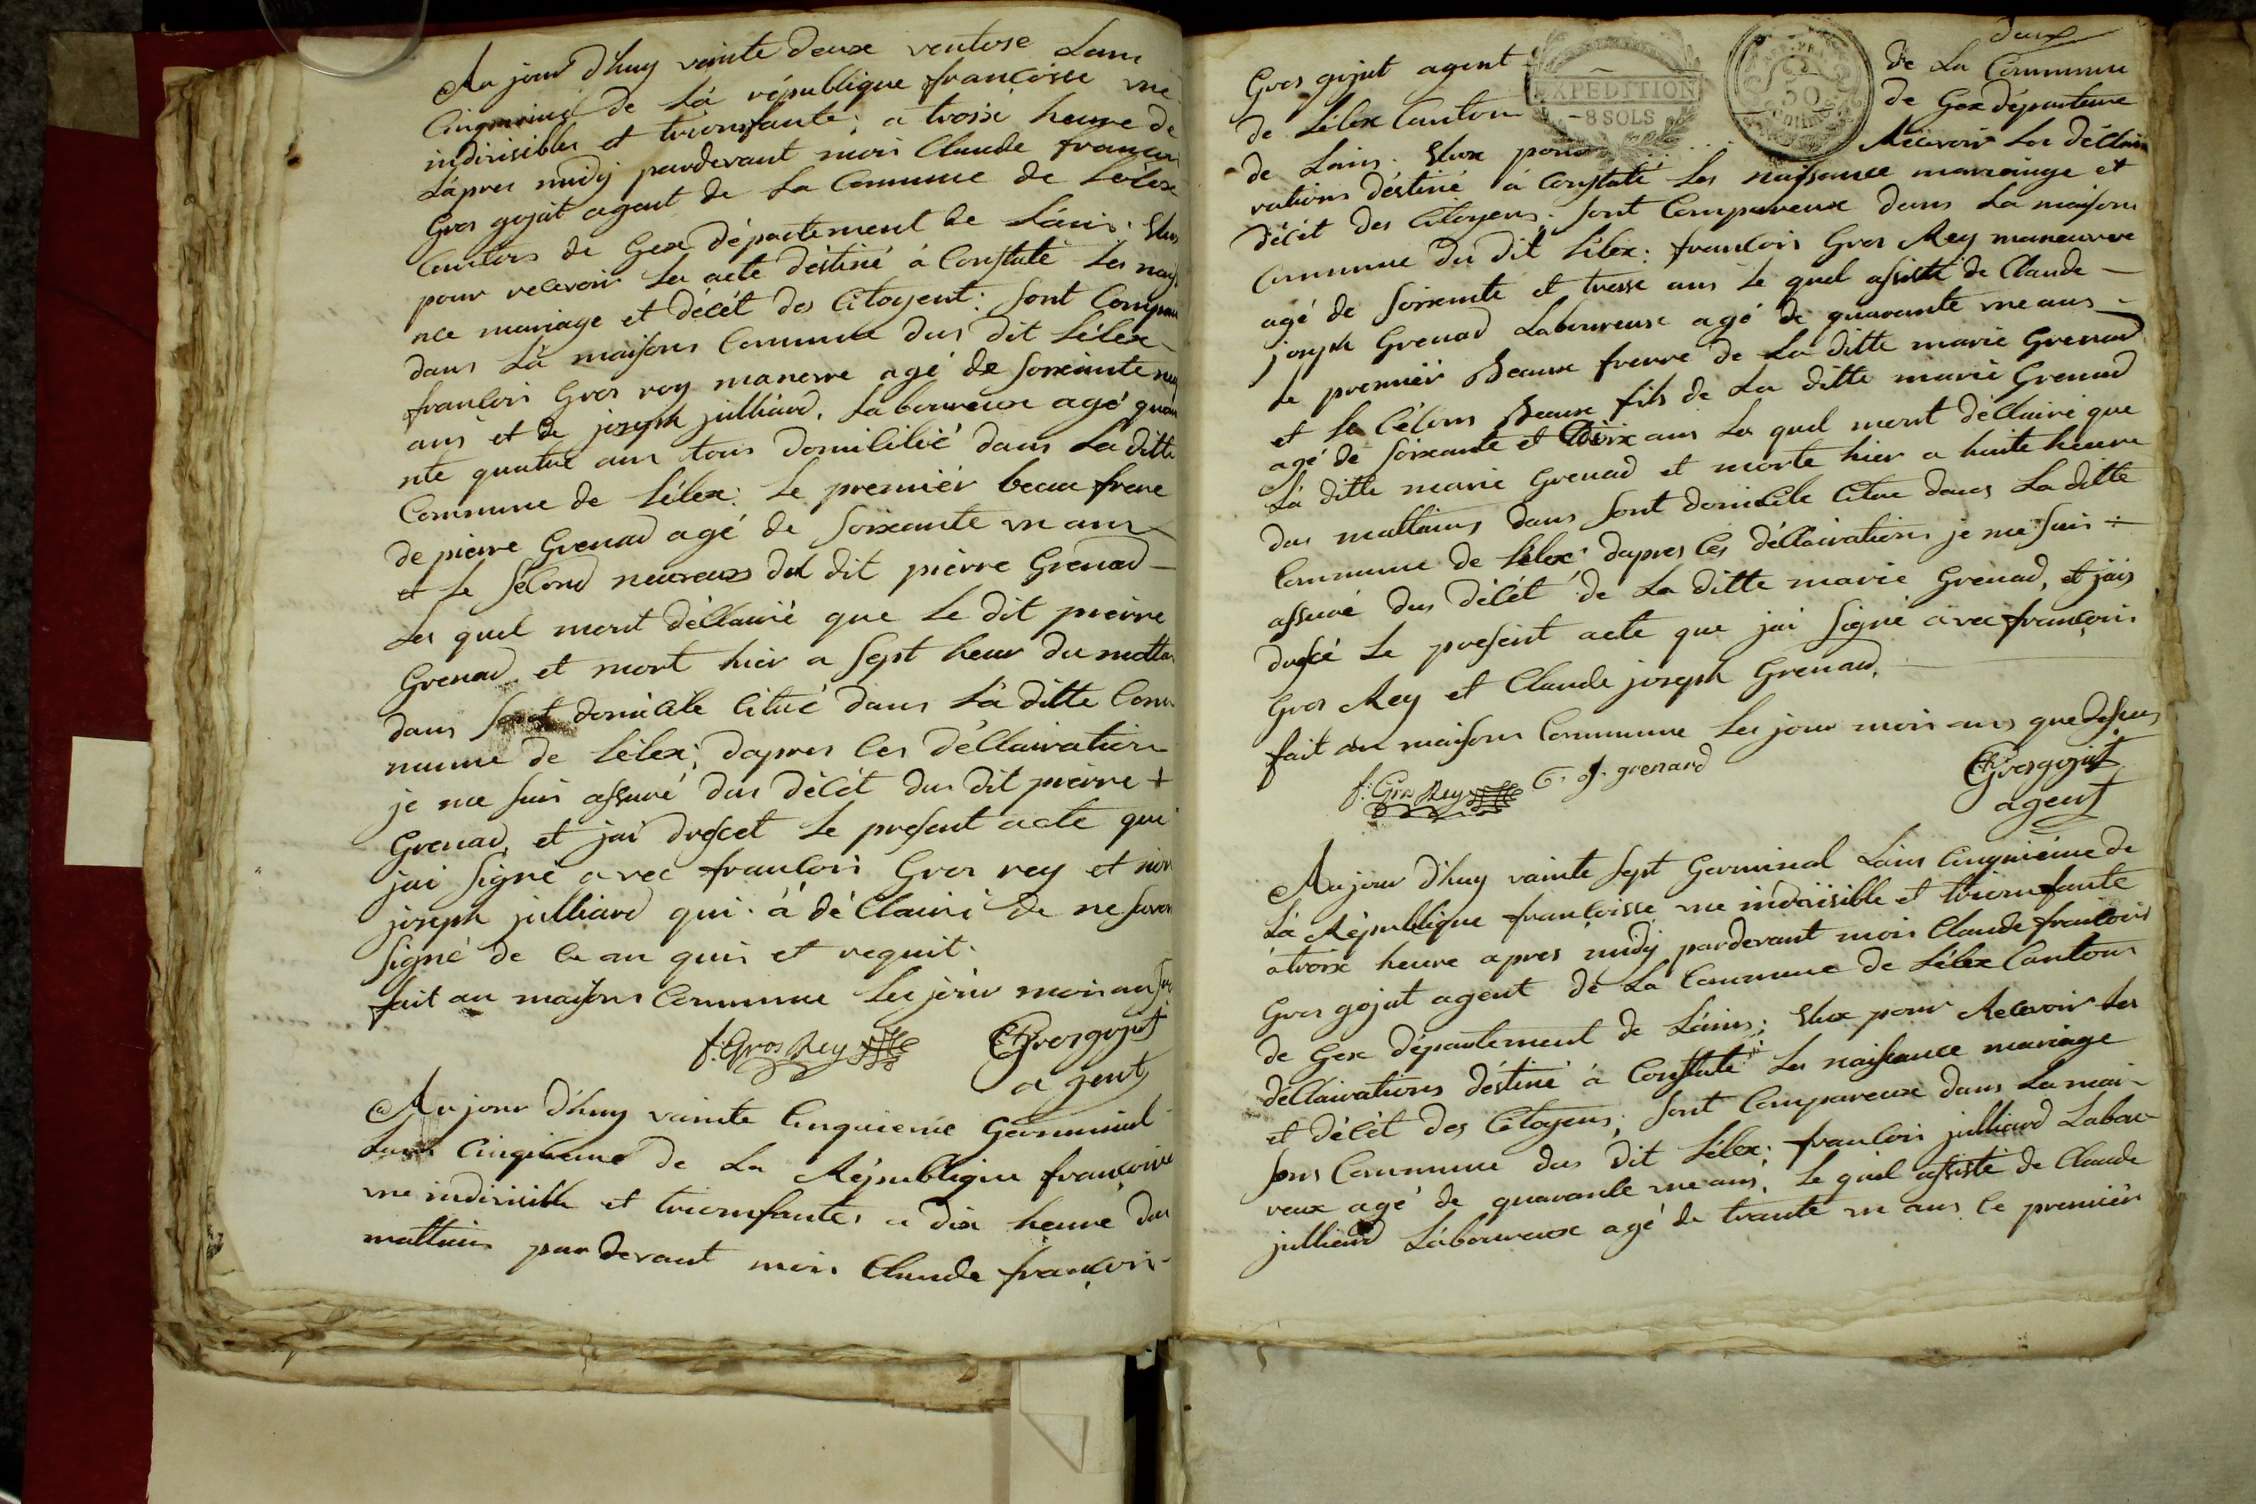 Au jour d'huy vainte deux ventose Lan
Cinquieme de La république francoise une
indivisibles et triomfante; a troix heure de
Lapres midy pardevant moi Claude francois
Gros gojat agent de La Commune de Lélex
Cantons de Gex département de Lain. Elus
pour recevoir les acte déstiné á Constaté les naissa
nce mariage et décét des Citoyent: Sont Comparu
dans Là maisons Commune dus dit Lélex
francois Gros rey manevre agé de Soixainte neuf
ans et de joseph julliard, Laboureux agé quara
nte quatre ans tous domicilié dans La ditte
Commune de Lélex: Le premiér beau frere
de pierre Grenad agé de Soixante un ans
et Le Sécond neuveus du dit pierre Grenad
Les quel mont déllairé que Le dit pierre
Grenad et mort hier a Sept heur du mattin
dans Sont domicile Citué dans Là ditte Com
mune de Lélex; dapres les déllairation
je me Suis assuré dus décét dus dit pierre +
Grenad, et jai drescet Le present acte que
jai Signé avec francois Gros rey et non
joseph julliard qui á déClairé de ne Savoir
Signé de ce an quis et requit.
fait au maisons Commune Les jour mois an Sus
f. Gros Rey Cf Grosgojat
agent
Au jour d'huy vainte Cinquieme Germinal
Lans Cinquieme de La République francoise
une indivisible et triomfantes a dix heure dus
mattins par devant mois Claude françois
deux
Gros gojat agent de La Commune
EXPEDITION
8 SOLS
50
centimes
de Lélex Canton de Gex département
de Lains. Elux pour Récevoir Les déllai
rations déstiné á Constaté Les naissance marriage et
décét des Citoyens: Sont Compareux dans La maison
Commune du dit Lélex: francois Gros Rey maneuvre
agé de Soixante et tresse ans Le quel assisté de Claude
joseph Grenad Laboureux agé de quarante une ans
Le premiér Beaux frerre de La ditte marie Grenad
et Le Cécons Beaux fils de La ditte marie Grenad
agé de Soixante et troix ans Les quel mont déllairé que
Là ditte marie Grenad et morte hier a huite heure
dus mattains dans Sont domicile Citue dans La ditte
Commune de Lélex dapres les déllairations je me Suis +
assuré dus décét de La ditte marie Grenad, et jais
drescé Le present acte que jai Signé avec francois
Gros Rey et Claude joseph Grenad.
fait au maisons Commune Les jour mois ans que dessus
f. Gros Rey C. J. grenard Cf Grosgojat
agent
Au jour d'huy vainte Sept Germinal Lans Cinquiéme de
Là République françoisse une indivisible et triomfante
á troix heure apres midy pardevant mois Claude francois
Gros gojat agent de La Commune de Lélex Canton
de Gex département de Lains; Elux pour Recevoir Les
déllairations déstiné á Constaté Les naissance mariage
et décét des Citoyens; Sont Compareux dans La mai-
sons Commune dus dit Lélex; francois julliard Labou-
reux agé de quarante une ans, Le quel assisté de Claude
julliard Láboureux agé de trante un ans Ce premiér